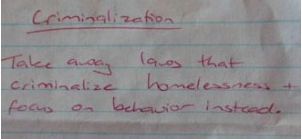 Criminalization
Take away laws that
criminalize homelessness +
focus on behavior instead.